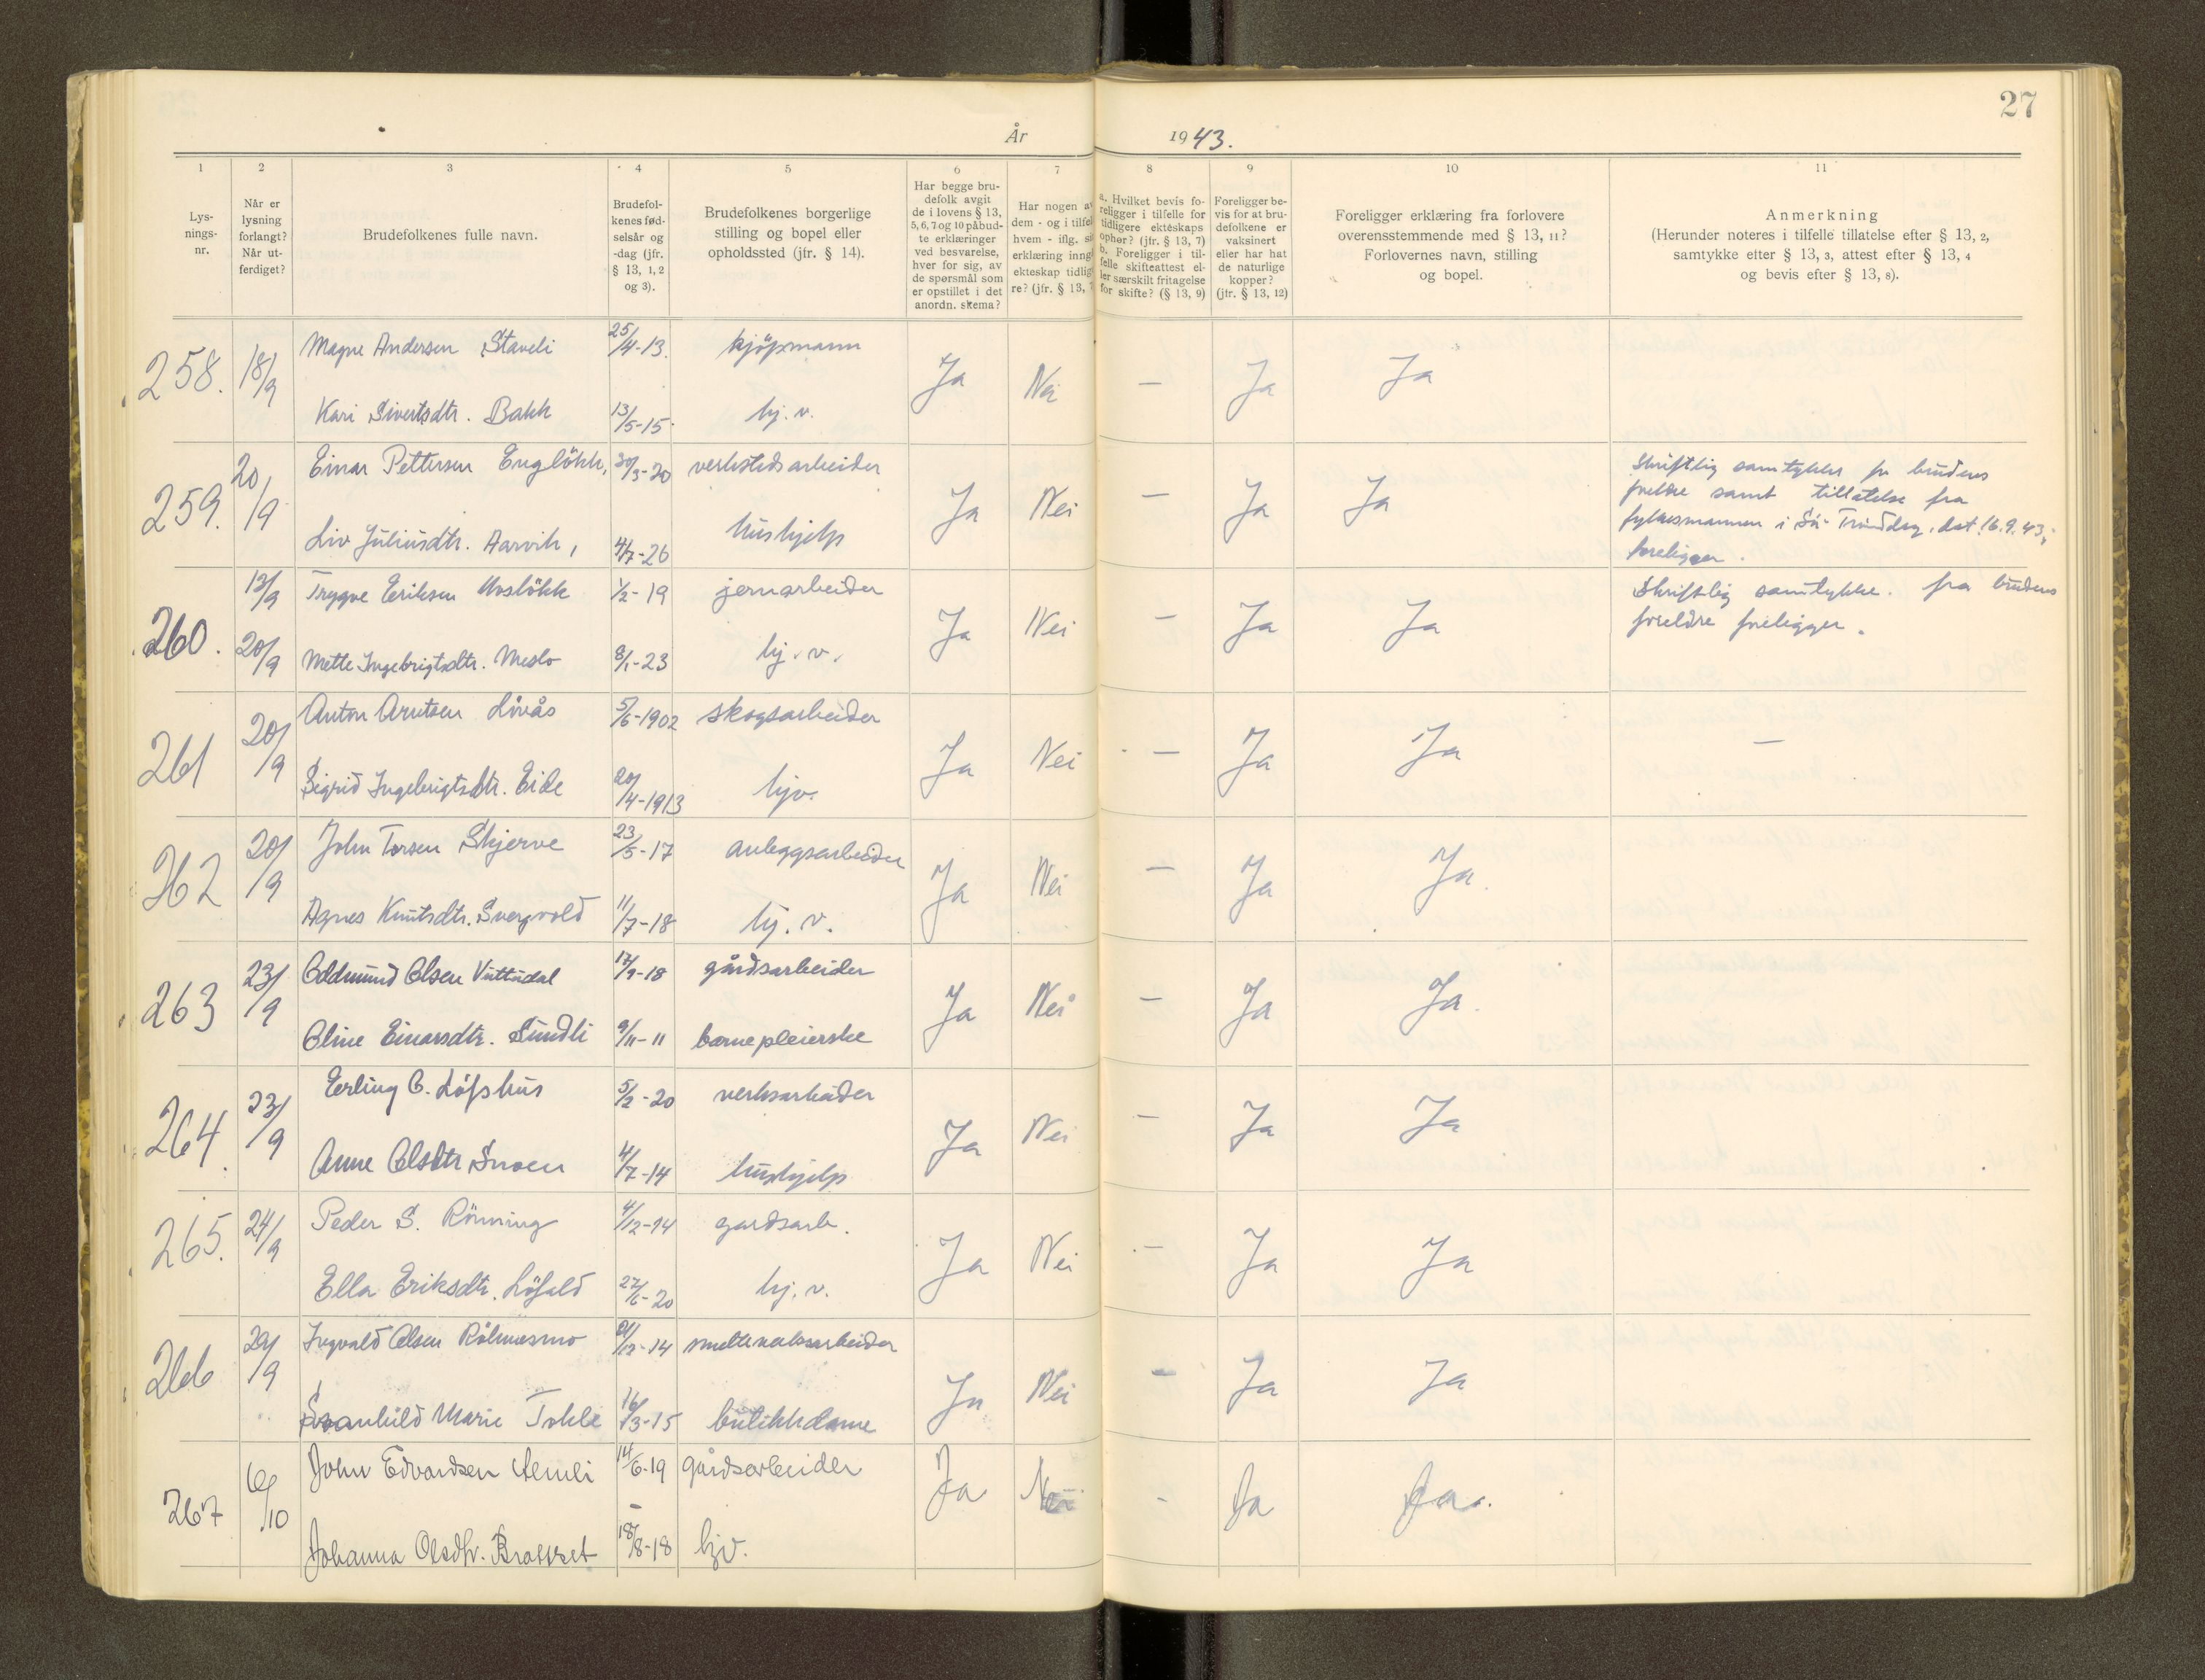 27
År 1943.
1 2 3 4 5 6 7 8 9 10 11
Lys-
nings-
nr.
Når er
lysning
forlangt?
Når ut-
ferdiget?
Brudefolkenes fulle navn.
Brudefol-
kenes fød-
selsår og
-dag (jfr.
§ 13, 1, 2
og 3).
Brudefolkenes borgerlige
stilling og bopel eller
opholdssted (jfr. § 14).
Har begge bru-
defolk avgit
de i lovens § 13,
5, 6, 7 og 10 påbud-
te erklæringer
ved besvarelse,
hver for sig, av
de spørsmål som
er opstillet i det
anordn. skema?
Har nogen av
dem - og i tilfel
hvem - iflg. si
erklæring inng
ekteskap tidlig
re? (jfr. § 13,
a. Hvilket bevis fo-
religger i tilfelle for
tidligere ekteskaps
ophør? (jfr. § 13, 7)
b. Foreligger i til-
felle skifteattest el-
ler særskilt fritagelse
for skifte? (§ 13, 9)
Foreligger be-
vis for at bru-
defolkene er
vaksinert
eller har hat
de naturlige
kopper?
(jfr. § 13, 12)
Foreligger erklæring fra forlovere
overensstemmende med § 13, 11?
Forlovernes navn, stilling
og bopel.
Anmerkning
(Herunder noteres i tilfelle tillatelse efter § 13, 2,
samtykke efter § 13, 3, attest efter § 13, 4
og bevis efter § 13, 8).
258. 18/9 Magne Andersen Staveli 25/4-13. kjöpmann Ja Nei — Ja Ja
Kari Sivertsdtr. Bakk 13/5-15. hj. v.
259. 20/9 Einar Pettersen Englökk, 30/3-20 verkstedsarbeider Ja Nei — Ja Ja
Liv Juliusdtr. Aarvik, 4/7-26 hushjelp
Skriftlig samtykke fr brudens
foreldre samt tillatelse fra
fylkesmannen i Sör-Tröndelag, dat. 16.9.43,
foreligger.
260. 13/9 Trygve Eriksen 1/2-19 jernarbeider Ja Nei — Ja Ja
20/9 Mette Ingebrigtsdtr. Meslo 8/1-23 hj. v.
Skriftlig samtykke. fra brudens
foreldre foreligger.
261 20/9 Anton Arntsen Livås 5/6-1902 skogsarbeider Ja Nei — Ja Ja —
Sigrid Ingebrigtsdtr. Eide 20/4-1913 hjv.
262 20/9 John Torsen Skjerve 23/5-17 anleggsarbeider Ja Nei — Ja Ja
Agnes Knutsdtr. Svergvold 11/7-18 hj. v.
263 23/9 Oddmund Olsen Vuttudal 17/9-18 gårdsarbeider Ja Nei — Ja Ja.
Oline Einarsdtr. Sundli 9/11-11 barnepleierske
264. 23/9 Erling O. Löfshus 5/2-20 verksarbeider Ja Nei — Ja Ja
Anne Olsdtr Snoen 4/7-14 hushjelp
265. 24/9 Peder S. Rönning 4/12-14 gardsarb. Ja Nei — Ja Ja
Ella Eriksdtr. Löfald 27/6-20 hj. v.
266 29/9 Ingvald Olsen Rölmesmo /12-14 smelteverksarbeider Ja Nei — Ja Ja
Svanhild Marie Tokle 16/3-15 butikkdame
267 6/10 John Edvardsen 14/6-19 gårdsarbeider Ja Nei - Ja Ja.
Johanna Olsdtr. Brattset 18/8-18 hjv.